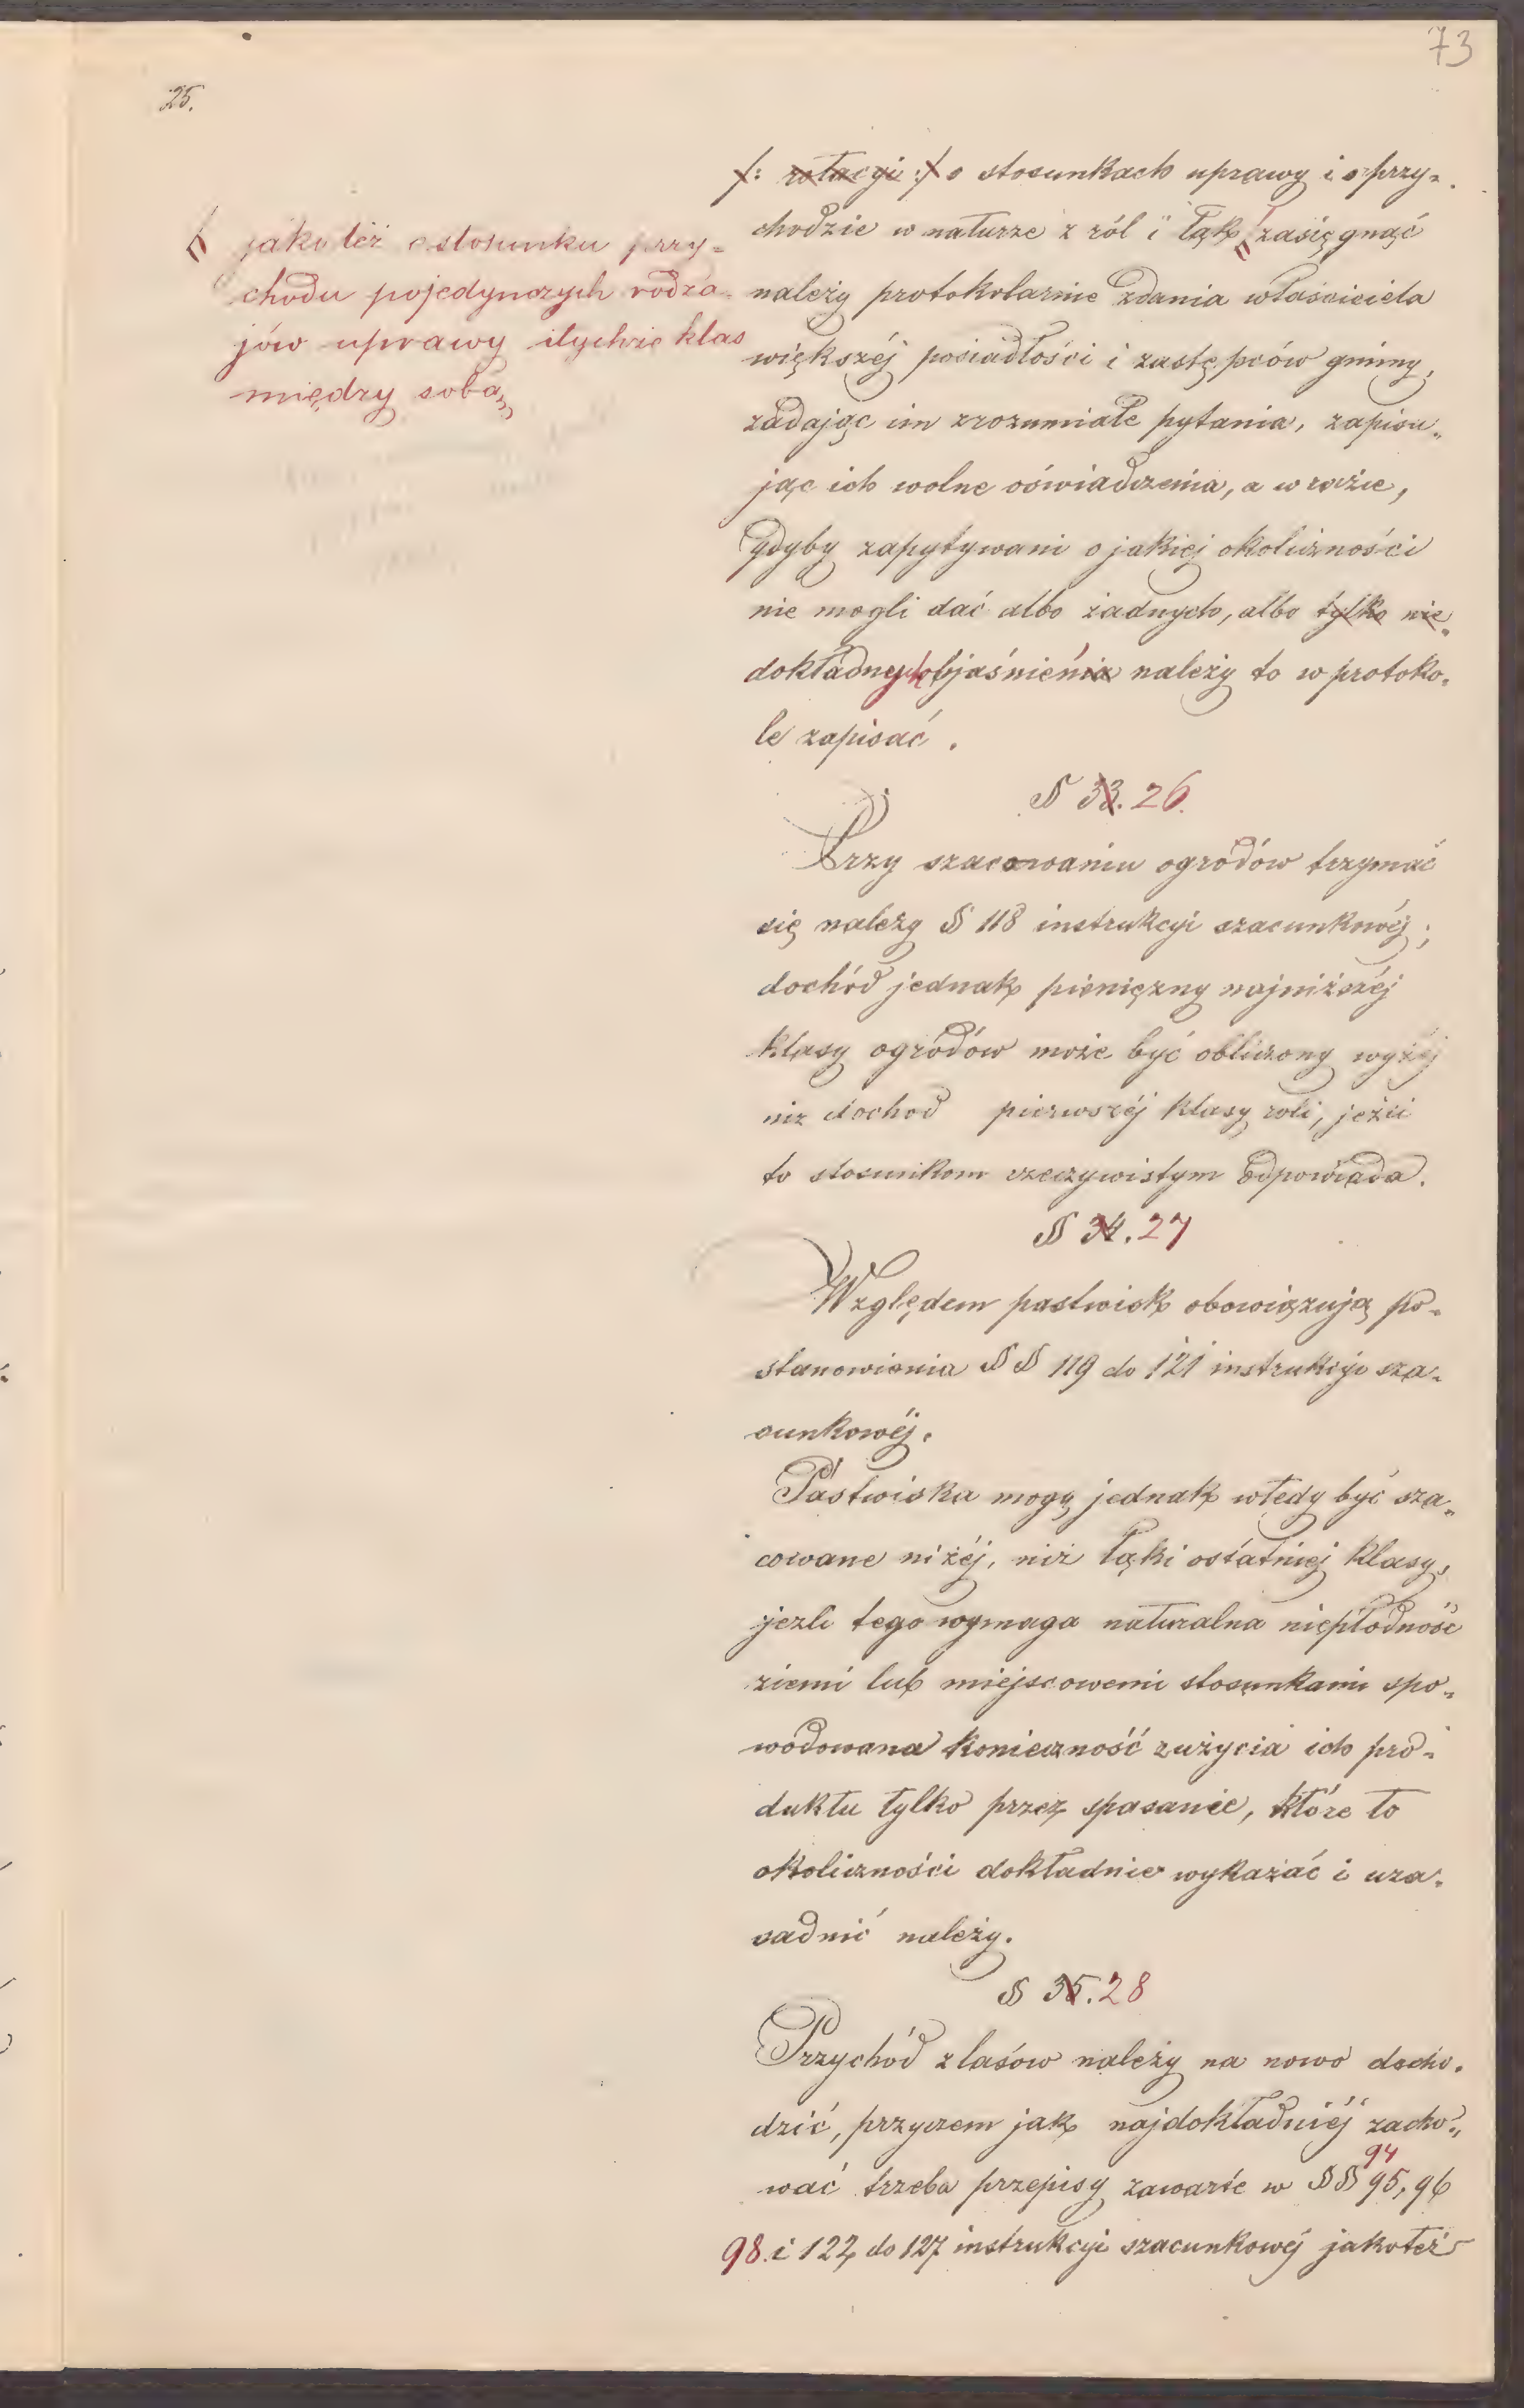 73
25.
/: rotacyi :/ o stosunkach uprawy i o przy-
chodzie w naturze z ról i łąk zasięgnąć
należy protokolarnie zdania właściciela
większéj posiadłości i zastępców gminy,
zadając im zrozumiałe pytania, zapisu-
jąc ich wolne oświadczenia, a w razie,
gdyby zapytywani o jakiej okoliczności
nie mogli dać albo żadnych, albo tylko nie-
dokładnych objaśnienia należy to w protoko-
le zapisać.
jakoteż o stosunku przy-
chodu pojedynczych rodza-
jów uprawy i tychże klas
między sobą,
§ 33. 26.
Przy szacowaniu ogrodów trzymać
się należy § 118 instrukcyi szacunkowéj;
dochód jednak pieniężny najniższéj
klasy ogrodów może być obliczony wyżéj
niz dochod pierwszéj klasy roli, jeżli
to stosunkom rzeczywistym odpowiada.
§ 34. 27
Względem pastwisk obowiązują po-
stanowienia §§ 119 do 121 instrukcyi sza-
cunkowéj.
Pastwiska mogą jednak wtedy być sza-
cowane niżéj, niż łąki ostatniej klasy,
jezli tego wymaga naturalna niepłodność
ziemi lub miejscowemi stosunkami spo-
wodowana konieczność zużycia ich pro-
duktu tylko przez spasanie, które to
okoliczności dokładnie wykazać i uza-
sadnić należy.
§ 35. 28
Przychód z lasów należy na nowo docho-
dzić, przyczem jak najdokładniéj zacho-
94
wać trzeba przepisy zawarte w §§ 95, 96
98 i 122 do 127 instrukcyi szacunkowéj jakoteż